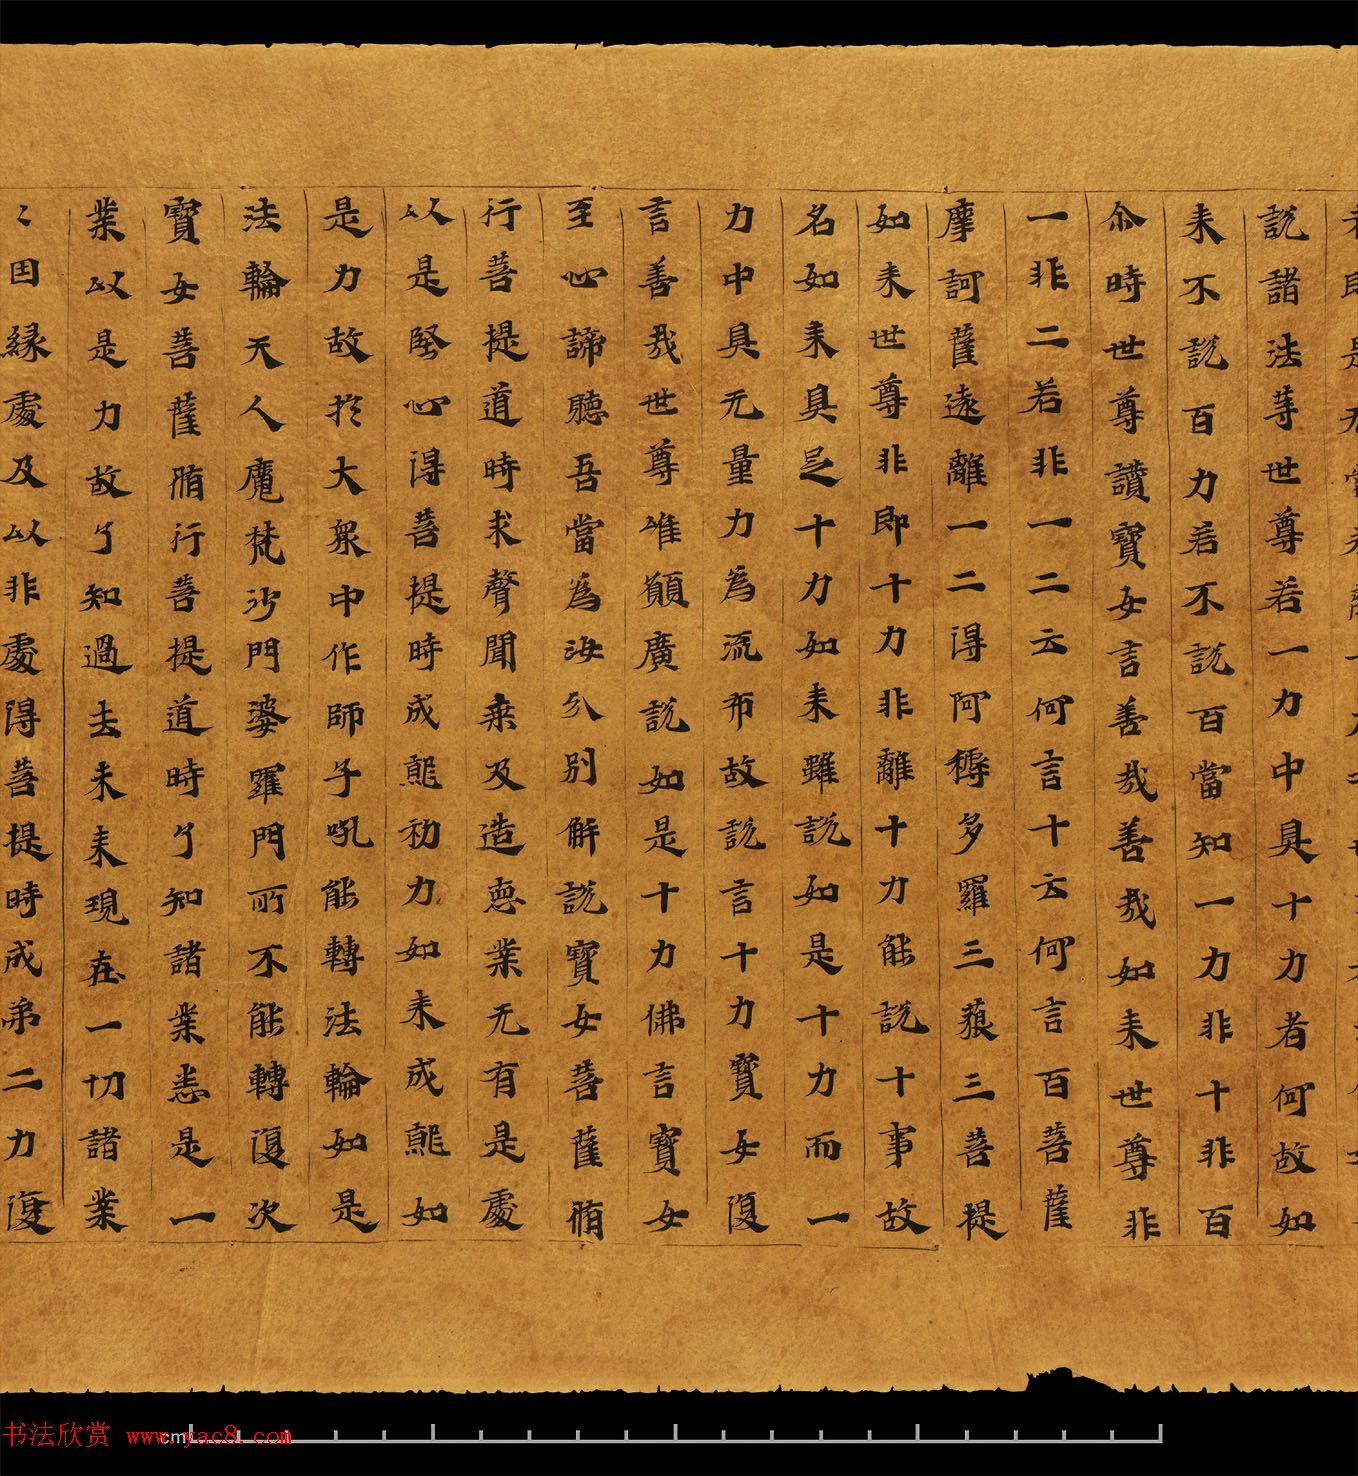 說諸法等世尊若一力中具十力者何故如
来不說百力若不說百當知一力非十非百
尒時世尊讚寶女言善哉善哉如来世尊非
一非二若非一二云何言十云何言百菩薩
摩訶薩遠離一二得阿耨多羅三藐三菩提
如来世尊非即十力非離十力能說十事故
名如来具足十力如来雖說如是十力而一
力中具无量力為流布故說言十力寶女復
言善哉世尊唯願廣說如是十力佛言寶女
至心諦聽吾當為汝分別解說寶女菩薩脩
行菩提道時求聲聞乘及造惡業无有是處
以是堅心得菩提時成就初力如来成就如
是力故於大衆中作師子吼能轉法輪如是
法輪天人魔梵沙門婆羅門所不能轉復次
寶女菩薩脩行菩提道時了知諸業悉是一
業以是力故了知過去未来現在一切諸業
〻因緣處及以非處得菩提時成弟二力復
书法欣赏 www.yac8.com
cm